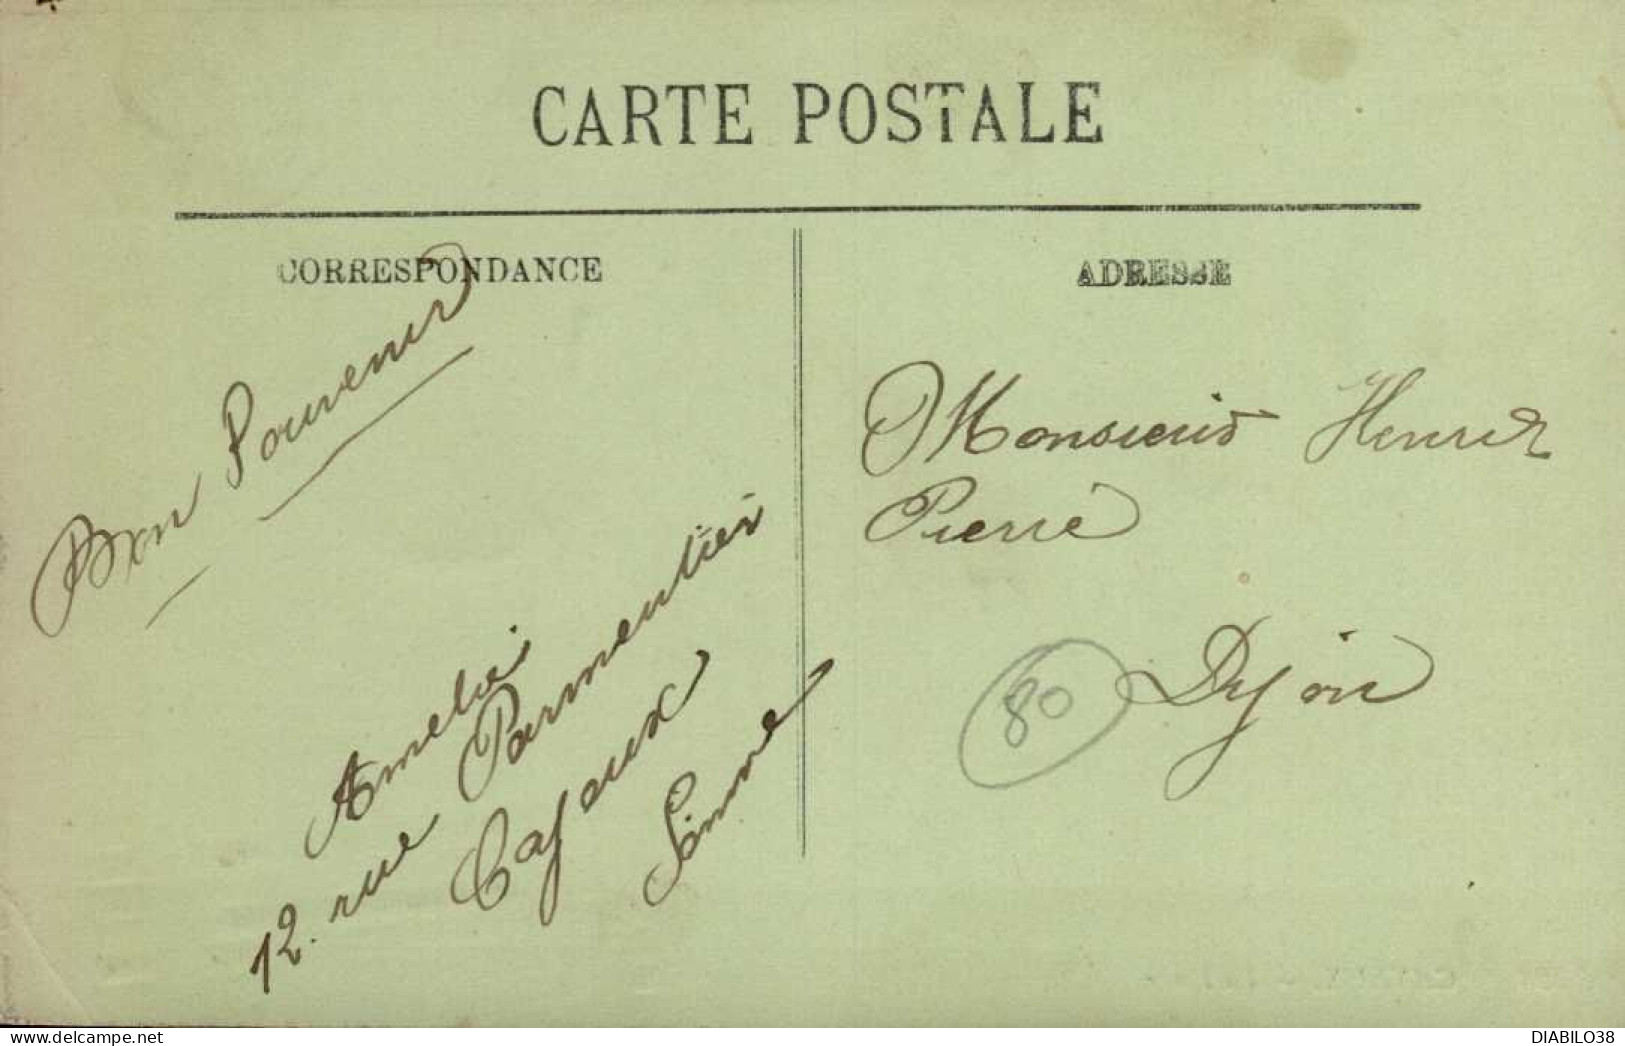 CARTE POSTALE
CORRESPONDANCE
ADRESSE
Bon Souvenir
Amelie
12. rue Parmentier
Cayeux
Somme
Monsieur Henri
Pierre
Dijon
80
DIABILO38